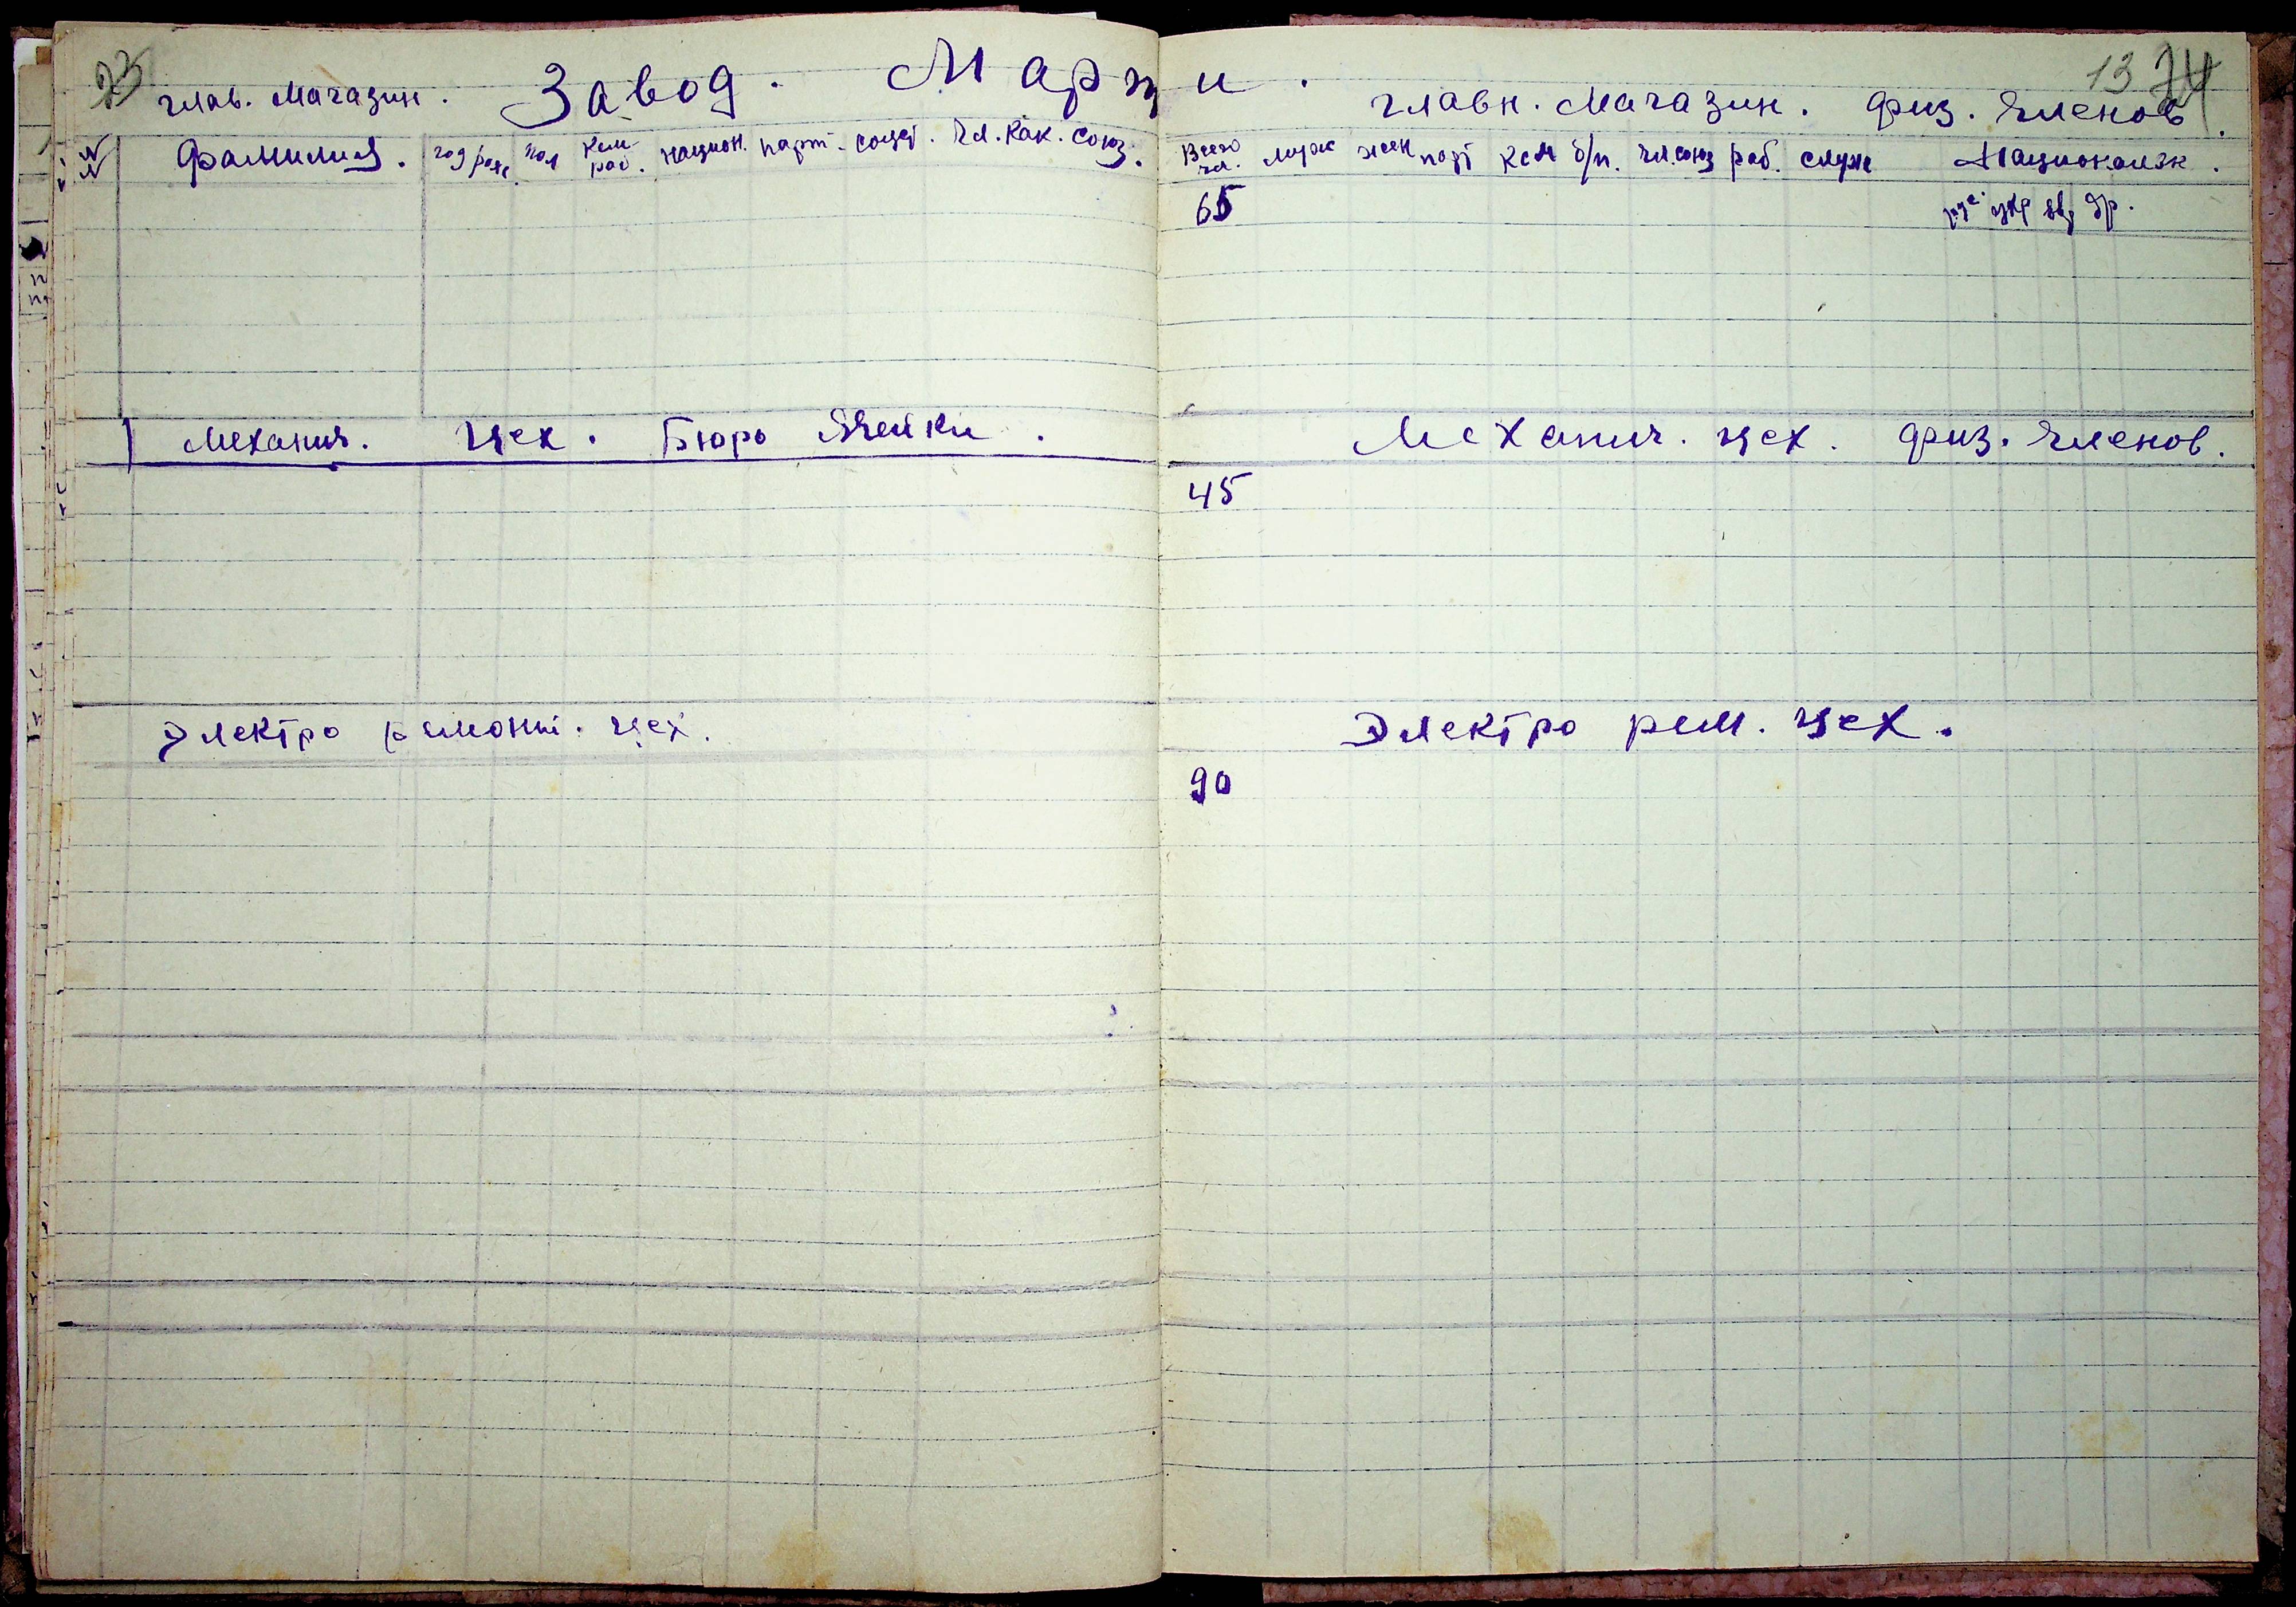 23
глав. Магазин. Завод. Марти.
№№ Фамилия. год рож. пол Кем раб. национ. парт. соцст. Чл. Как. союз.
Механич. Цех. Бюро Ячейки.
Электро ремонт. цех.
13 74
главн. Магазин. физ. Членов.
Всего чл. муж жен парт КСМ б/п. чл. союз раб. служ Национальн.
65 рус. укр ев. др.
Механич. цех. физ. Членов.
45
Электро рем. цех.
90